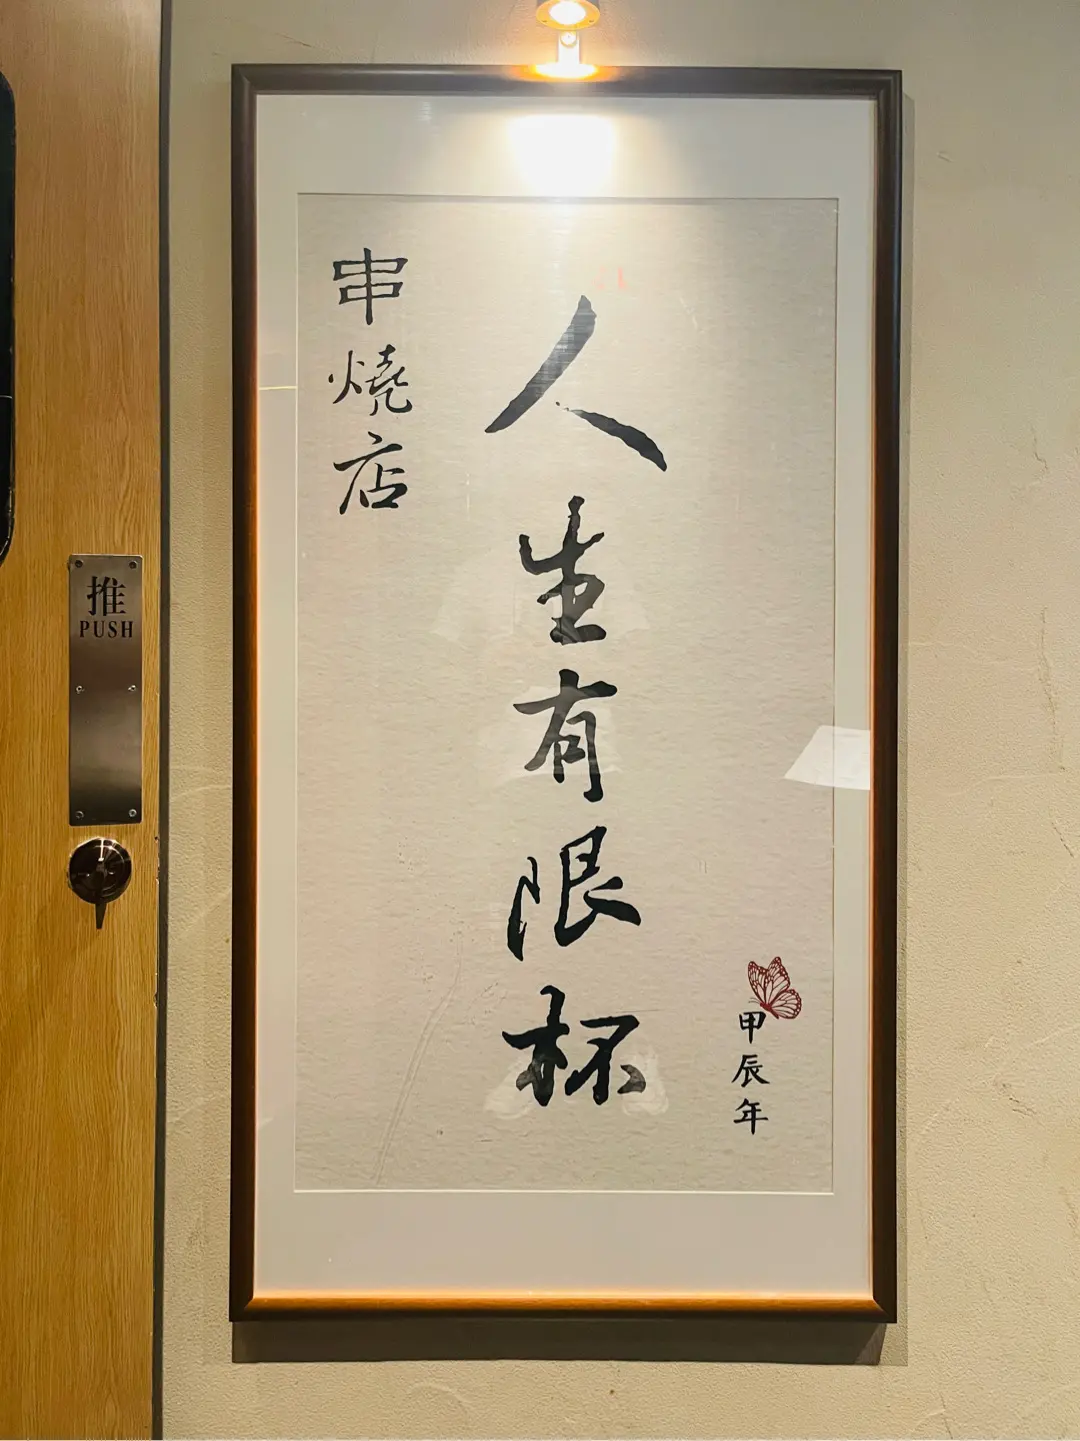 串燒店
人生有限杯
甲辰年
推
PUSH